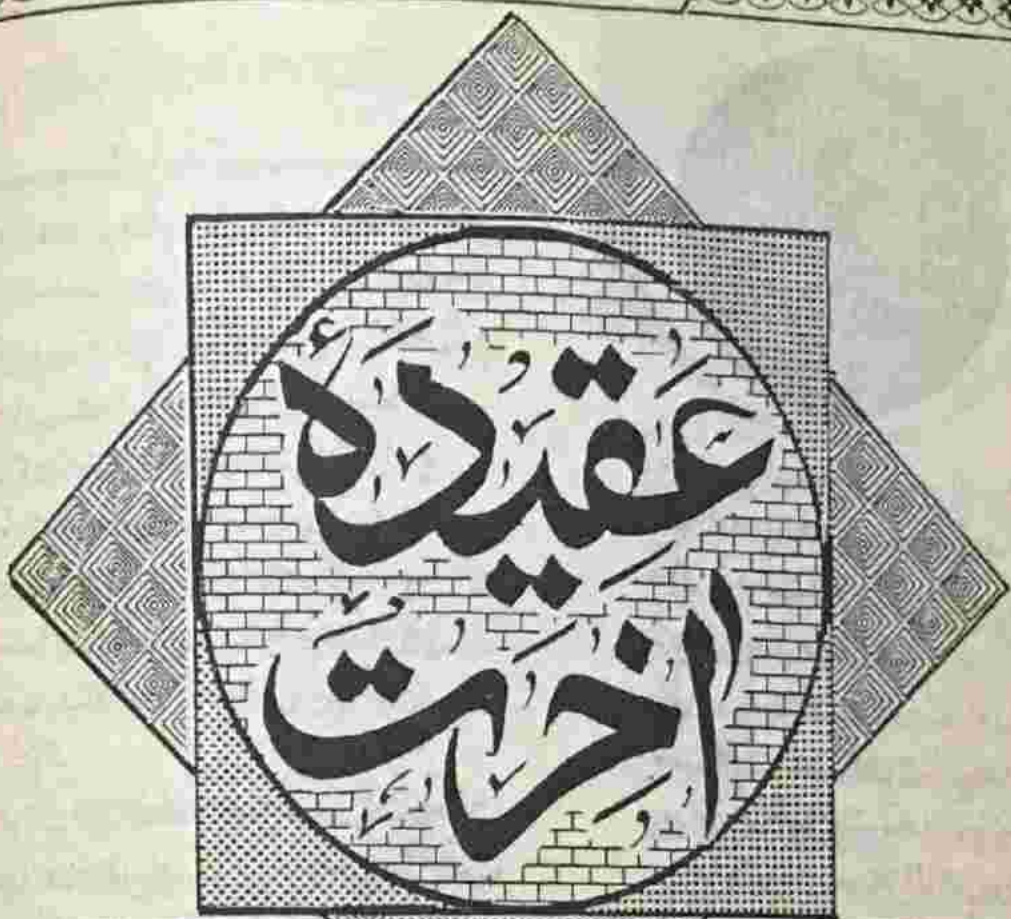 عقیدۂ
آخرت